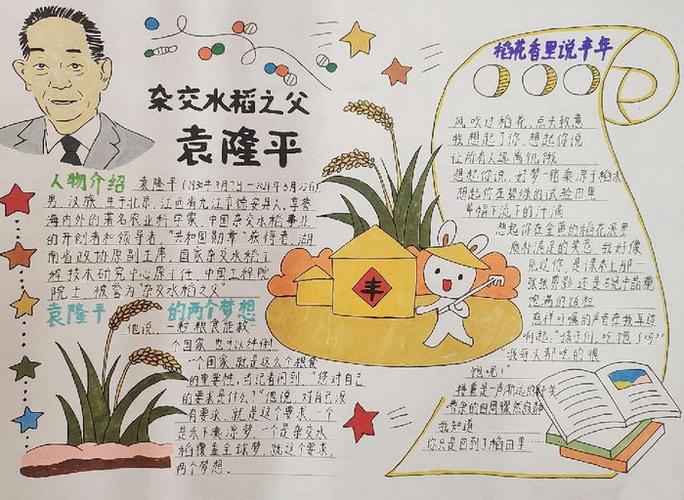 杂交水稻之父
袁隆平
人物介绍 袁隆平(1930年9月7日—2021年5月22日)
男,汉族,生于北京,江西省九江市德安县人,享誉
海内外的著名农业科学家,中国杂交水稻事业
的开创者和领导者,"共和国勋章"获得者,湖
南省政协原副主席,国家杂交水稻工
程技术研究中心原主任,中国工程院
院士,被誉为"杂交水稻之父"
袁隆平的两个梦想
他说,一粒粮食能救一
个国家,也可以绊倒
一个国家,就是这么个粮食
的重要性,当记者问到,"您对自己
的要求是什么?"他说,对自己没
有要求,就是这个要求,一个
是禾下乘凉梦,一个是杂交水
稻覆盖全球梦,就这个要求,
两个梦想。
丰
稻花香里说丰年
风吹过稻花,点头致意
我想起了你,想起你说
让所有人远离饥饿
想起你说,好梦
想起你在碧绿的试验田里
下的汗滴
想起你在金黄的稻浪里
我好像
见过你,是课本上那
饱满的
在我耳边
响起,"孩子们,吃饱了吗?"
饱呢!"
我知道
你只是回到了稻田里……